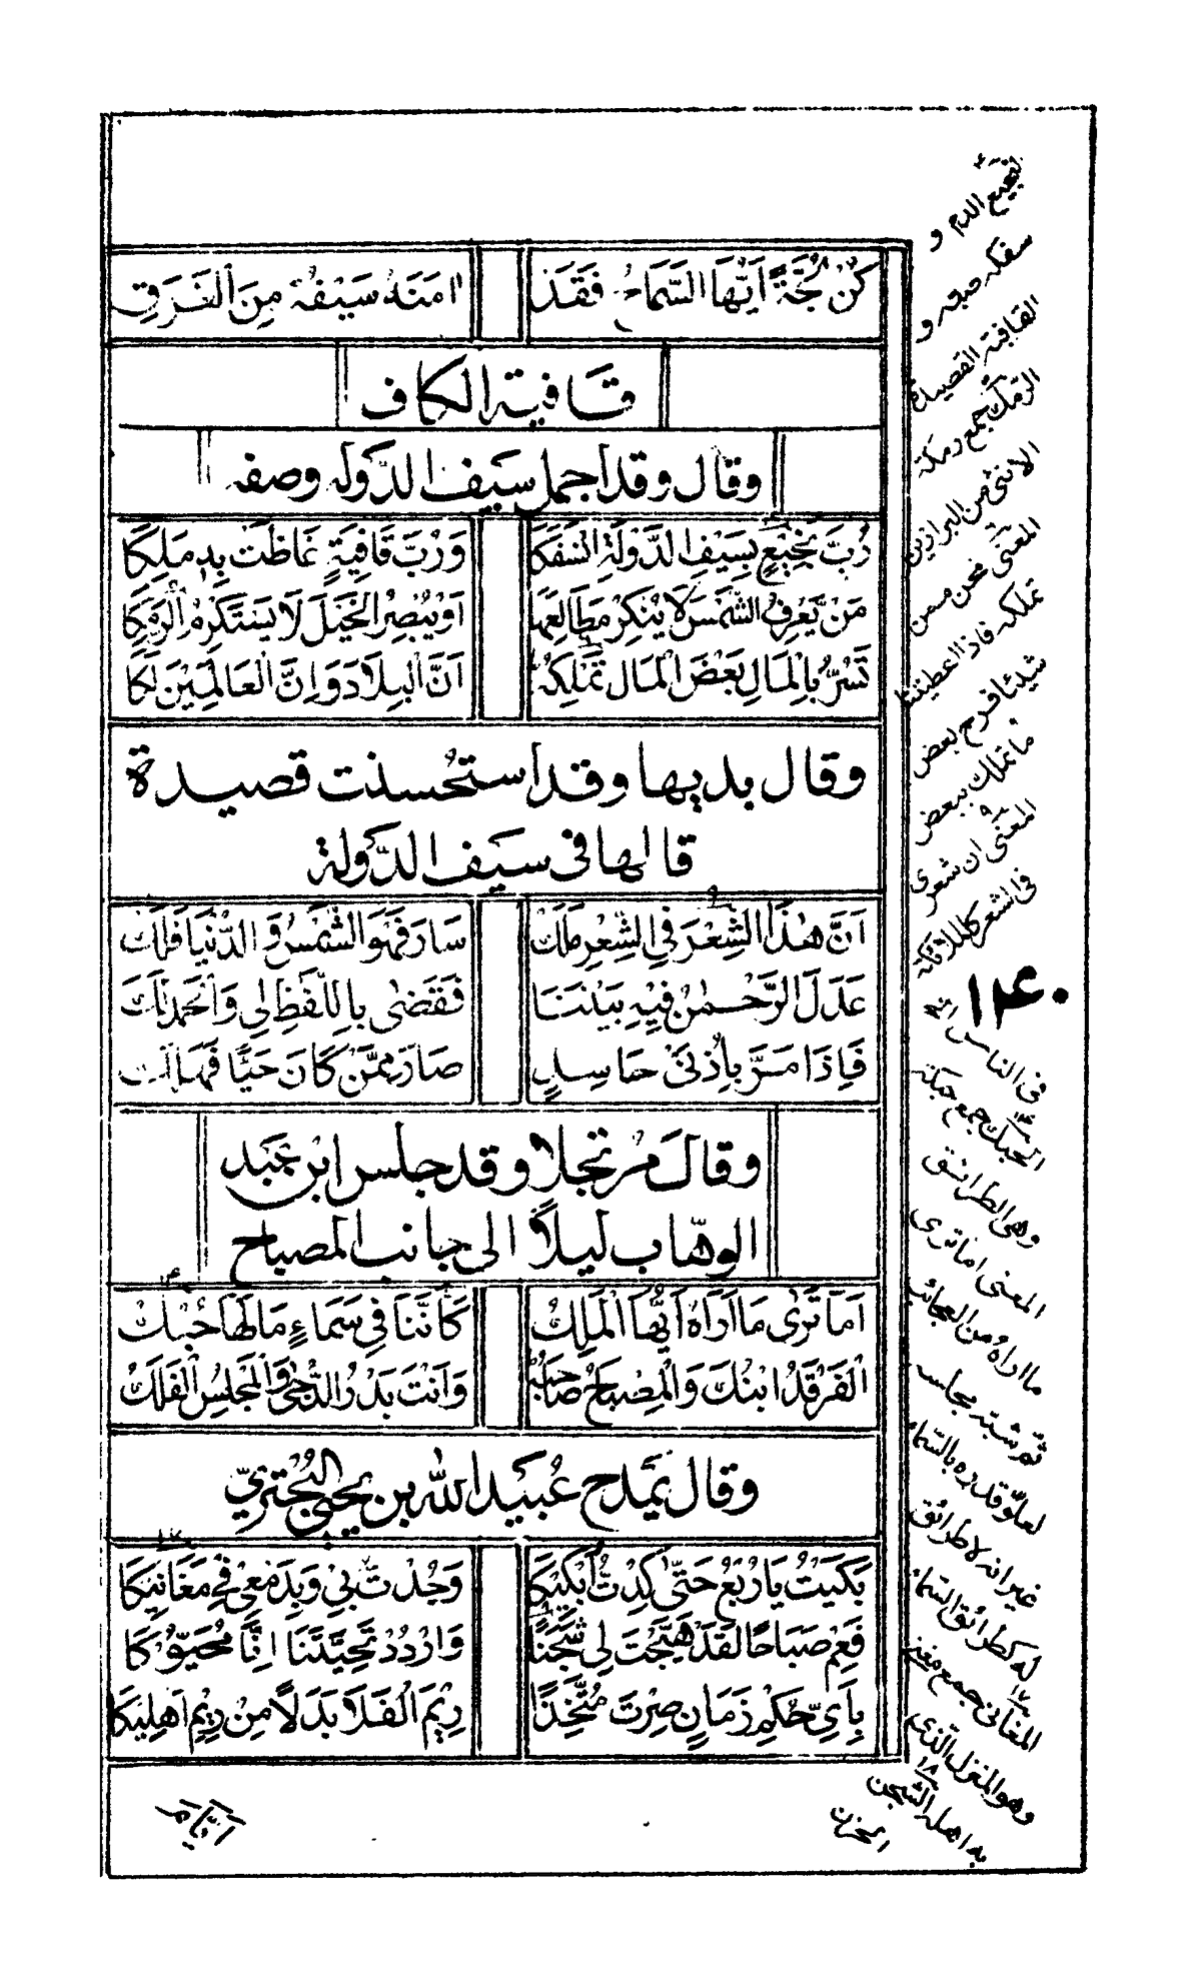 كُنْ لُجَّةً اَيُّهَا السَّمَاحُ فَقَدْ اٰمَنَهُ سَيْفُهُ مِنَ الْغَرَقِ
قافية الكاف
وقال وقد اجمل سيف الدوله وصفه
رُبَّ نَجِيْعٍ بِسَيْفِ الدَّوْلَةِ انْسَفَكَا وَرُبَّ قَافِيَةٍ غَاظَتْ بِهِ مَلِكَا
مَنْ يَّعْرِفِ الشَّمْسَ لَا يُنْكِرْ مَطَالِعَهَا اَوْ يُبْصِرِ الْخَيْلَ لَا يَسْتَكْرِمِ الرَّمَكَا
تَسُرُّ بِالْمَالِ بَعْضَ الْمَالِ تَمْلِكُهُ اَنَّ الْبِلَادَ وَاِنَّ الْعَالَمِيْنَ لَكَا
وقال بديها وقد استحسنت قصيدة
قالها فى سيف الدّولة
اَنَّ هٰذَا الشِّعْرَ فِي الشِّعْرِ مَلَكْ سَارَ فَهْوَ الشَّمْسُ وَالدُّنْيَا فَلَكْ
عَدَلَ الرَّحْمٰنُ فِيْهِ بَيْنَنَا فَقَضٰى بِاللَّفْظِ لِي وَالْحَمْدِ لَكْ
فَاِذَا مَرَّ بِاُذْنَيْ حَاسِدٍ صَارَ مِمَّنْ كَانَ حَيًّا فَهَلَكْ
وقالَ مُرتجلا وقد جلس ابن عبد
الوهّاب ليلاً الى جانب المصباح
اَمَا تَرٰى مَا اَرَاهُ اَيُّهَا الْمَلِكُ كَاَنَّنَا فِي سَمَاءٍ مَا لَهَا حُبُكْ
اَلْفَرْقَدُ ابْنُكَ وَالْمِصْبَاحُ صَاحِبُهُ وَاَنْتَ بَدْرُ الدُّجٰى وَالْمَجْلِسُ الْفَلَكُ
وقال يَمدح عُبيد الله بن يحيى البُحتريّ
بَكَيْتُ يَا رَبْعُ حَتّٰى كِدْتُ اُبْكِيْكَا وَجُدْتُ بِيْ وَبِدَمْعِيْ فِيْ مَغَانِيْكَا
فَعِمْ صَبَاحًا لَقَدْ هَيَّجْتَ لِيْ شَجَنًا وَارْدُدْ تَحِيَّتَنَا اِنَّا مُحَيُّوْكَا
بِاَيِّ حُكْمِ زَمَانٍ صِرْتَ مُتَّخِذًا رِيْمَ الْفَلَا بَدَلًا مِنْ رِيْمِ اَهْلِيْكَا
النجيع الدم و
سفكه صبه و
القافية القصيدة
الرمك جمع رمكة
الانثى من البراذين
المعنى نحن ممن
تملكه فاذا اعطيتنا
شيئا فرح بعض
ما تملك ببعض
المعنى ان شعرى
فى الشعر كالملائكة
۱۴۰
فى الناس
الحبك جمع حبكة
وهى الطرائق
المعنى اما ترى
ما اراه من العجائب
ثم شبه مجلسه
لعلو قدره بالسماء
غير انه لا طرائق
له كطرائق السماء
المغانى جمع مغنى
وهو المنزل الذى
به اهله الشجن
الحزن
اَيَّامَ